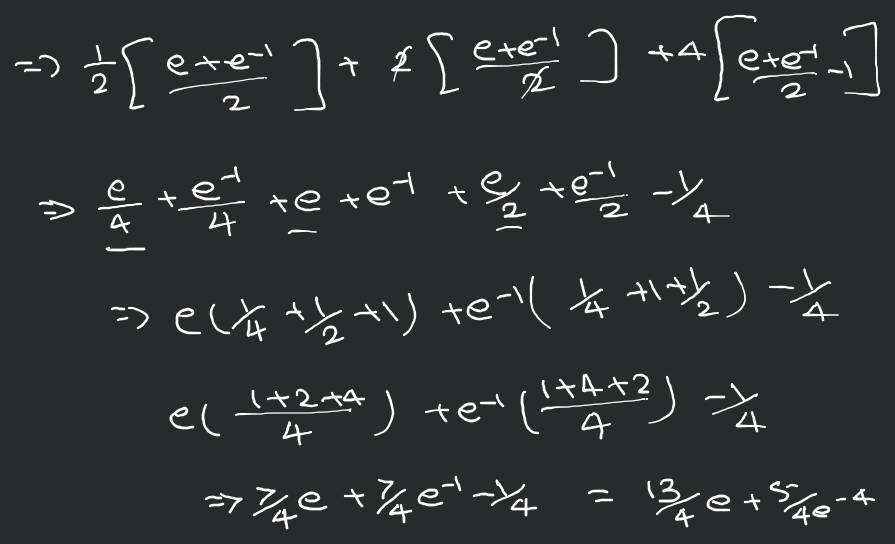 => 1/2 [ (e+e^-1)/2 ] + 2 [ (e+e^-1)/2 ] +4 [ (e+e^-1)/2 -1 ]
=> e/4 + e^-1/4 + e + e^-1 + e/2 + e^-1/2 - 1/4
=> e( 1/4 + 1/2 +1 ) + e^-1( 1/4 +1+ 1/2 ) - 1/4
e( (1+2+4)/4 ) + e^-1 ( (1+4+2)/4 ) - 1/4
=> 7/4 e + 7/4 e^-1 - 1/4 = 13/4 e + 5/4e -4